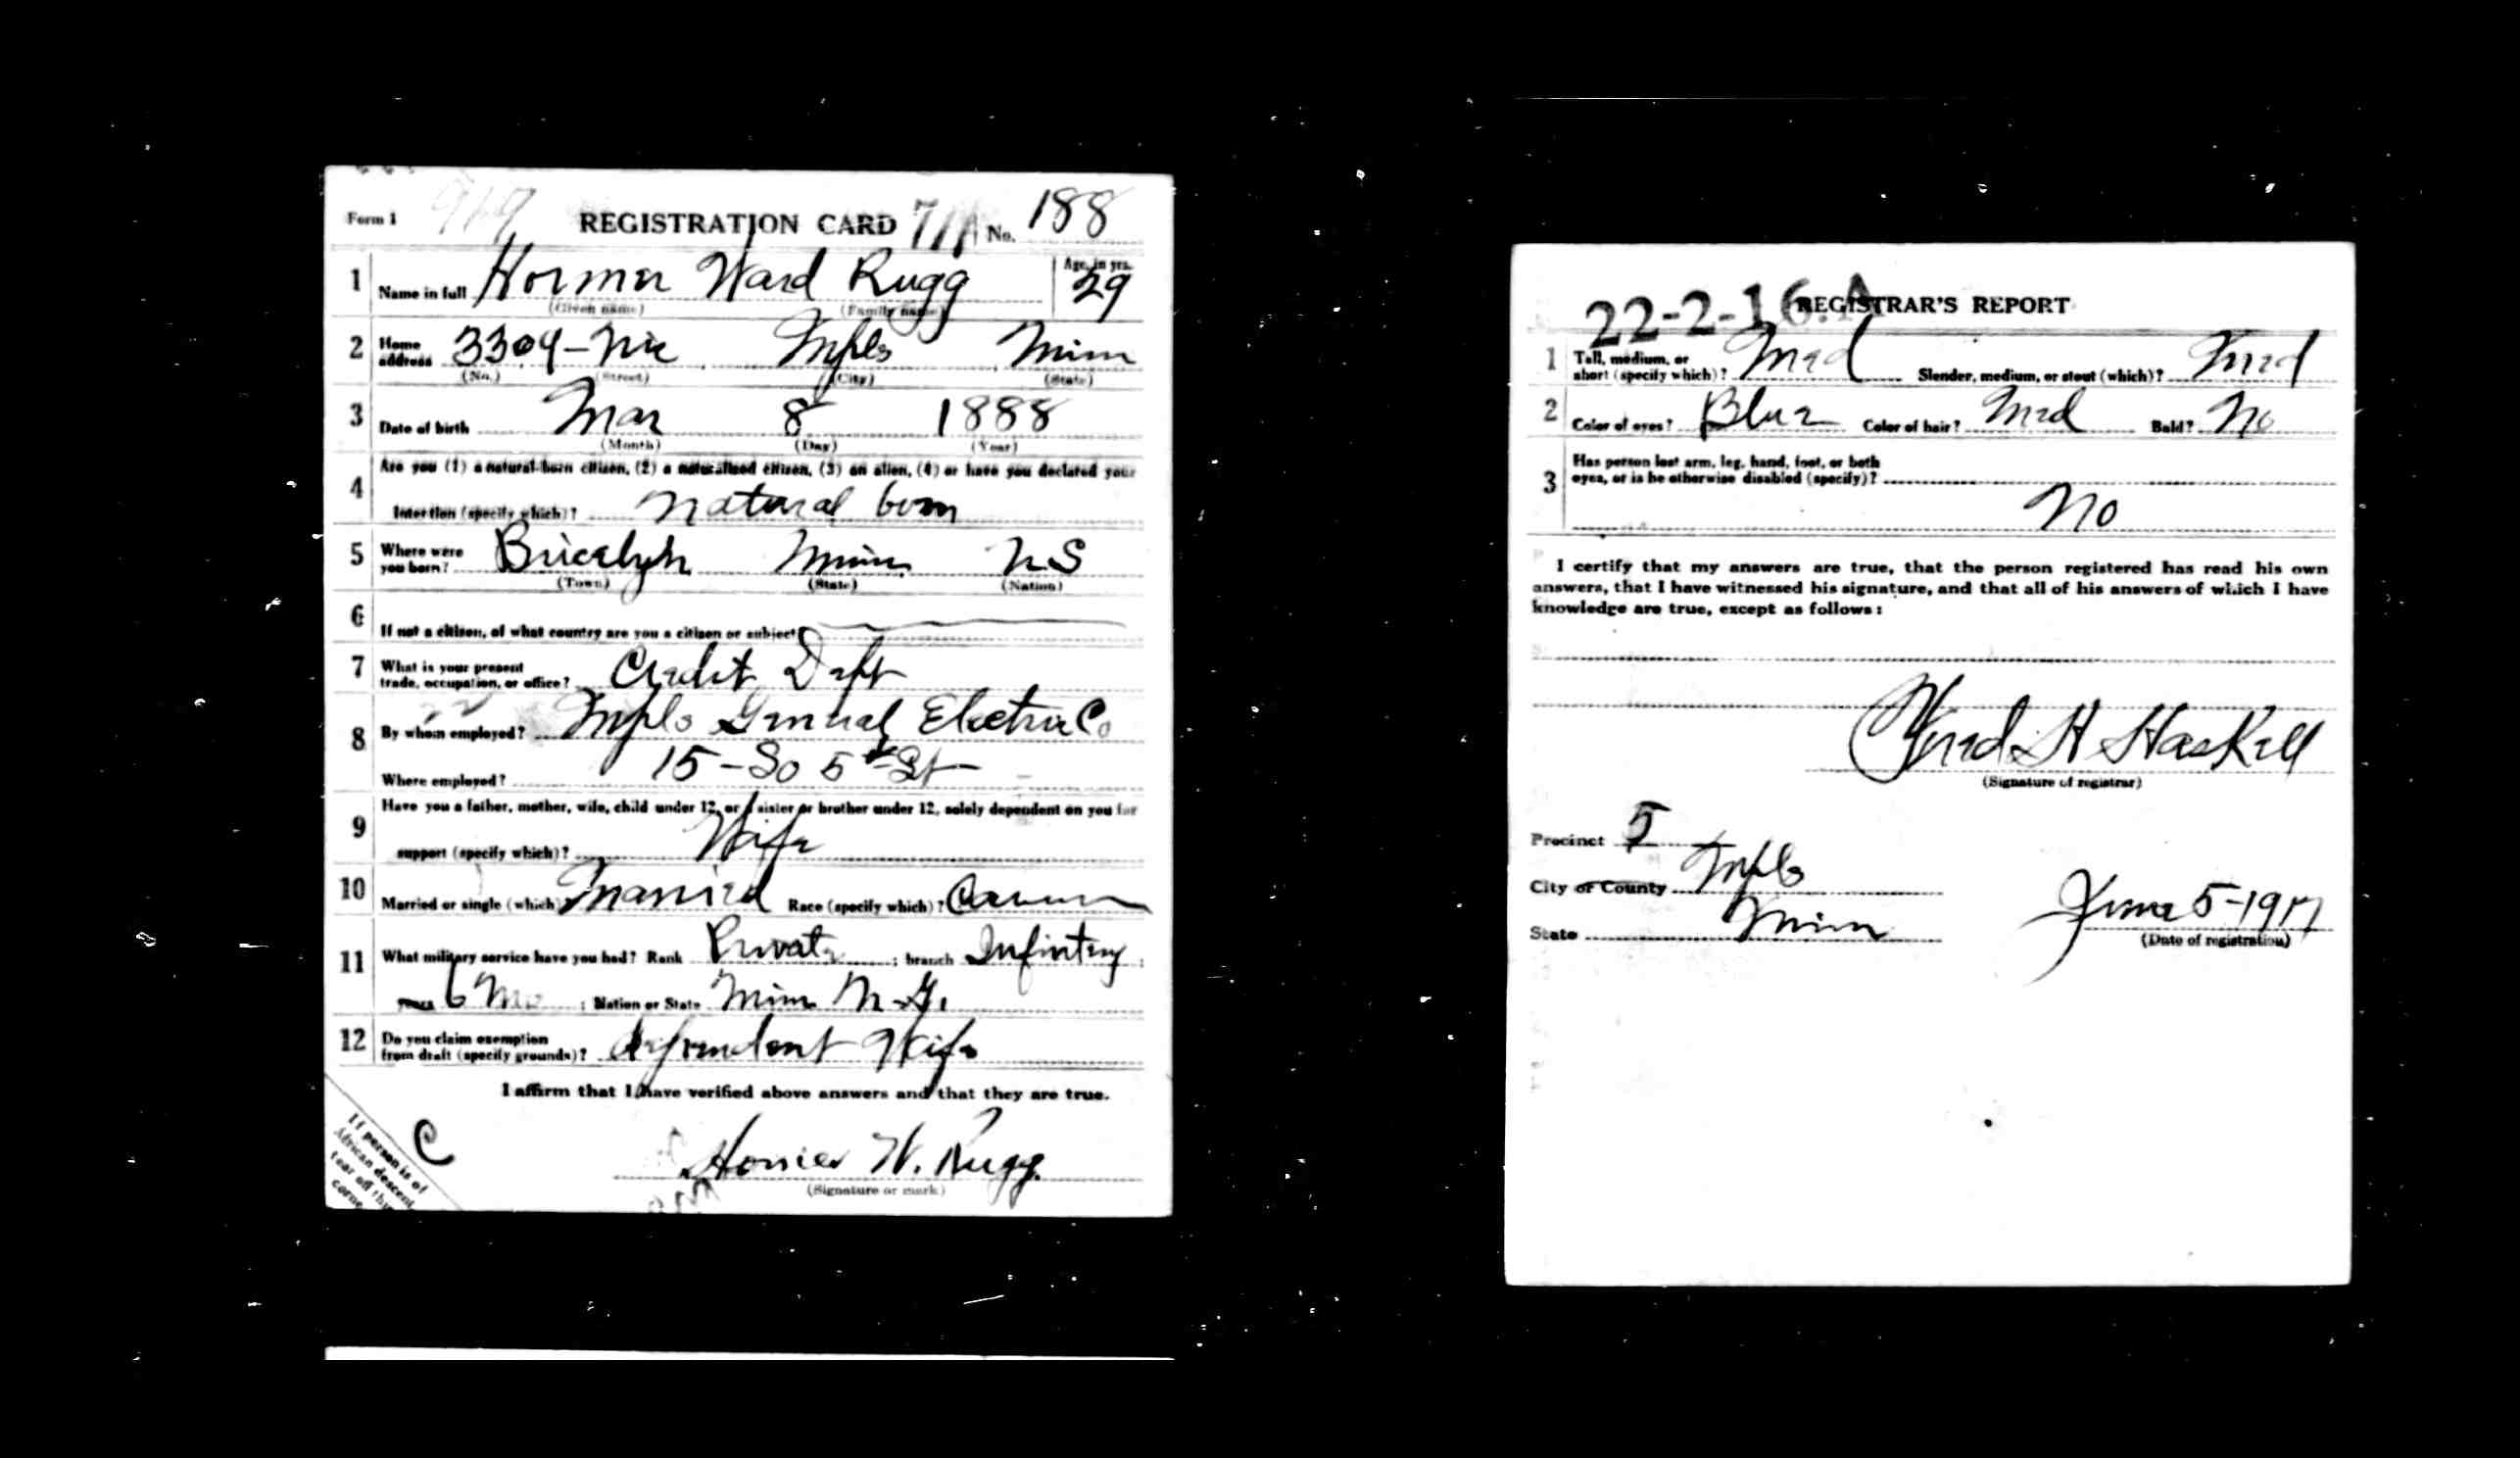 Form 1 919 REGISTRATION CARD 711 No. 188
1 Name in full Hormer Ward Rugg Age, in yrs. 29
(Given name) (Family name)
2 Home address 3304-Nic Mpls Minn
(No.) (Street) (City) (State)
3 Date of birth Mar 8 1888
(Month) (Day) (Year)
4 Are you (1) a natural-born citizen, (2) a naturalized citizen, (3) an alien, (4) or have you declared your
intention (specify which)? natural born
5 Where were you born? Bricelyn Minn US
(Town) (State) (Nation)
6 If not a citizen, of what country are you a citizen or subject?
7 What is your present trade, occupation, or office? Credit Dept
8 By whom employed? Mpls General Electric Co
Where employed? 15-So 5th St
9 Have you a father, mother, wife, child under 12, or a sister or brother under 12, solely dependent on you for
support (specify which)? Wife
10 Married or single (which)? Married Race (specify which)?
11 What military service have you had? Rank Private ; branch Infintry ;
years 6 Mo ; Nation or State Minn N.G.
12 Do you claim exemption from draft (specify grounds)? dependent Wife
I affirm that I have verified above answers and that they are true.
C
Homer W. Rugg
(Signature or mark)
If person is of
African descent
tear off this
corner
22-2-16. A REGISTRAR'S REPORT
1 Tall, medium, or short (specify which)? Med Slender, medium, or stout (which)? Med
2 Color of eyes? Blue Color of hair? Med Bald? No
3 Has person lost arm, leg, hand, foot, or both
eyes, or is he otherwise disabled (specify)?
No
I certify that my answers are true, that the person registered has read his own
answers, that I have witnessed his signature, and that all of his answers of which I have
knowledge are true, except as follows:
Fred H Haskell
(Signature of registrar)
Precinct 5
City or County Mpls
State Minn
June 5-1917
(Date of registration)